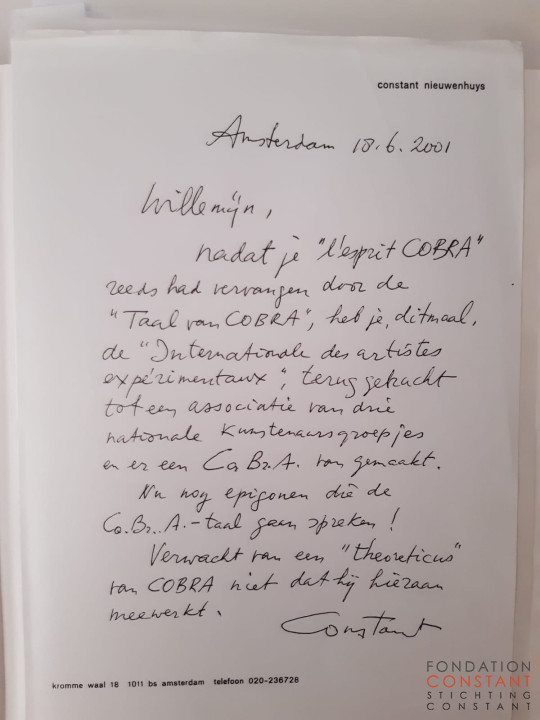 constant nieuwenhuys
Amsterdam 18.6.2001
Willemijn,
nadat je "l'esprit COBRA"
reeds had vervangen door de
"Taal van COBRA", heb je, ditmaal,
de "Internationale des artistes
expérimentaux", terug gebracht
tot een associatie van drie
nationale kunstenaarsgroepjes
en er een Co.Br.A. van gemaakt.
Nu nog epigonen die de
Co.Br.A.-taal gaan spreken!
Verwacht van een "theoreticus"
van COBRA niet dat hij hieraan
meewerkt.
Constant
kromme waal 18 1011 bs amsterdam telefoon 020-236728
FONDATION
CONSTANT
STICHTING
CONSTANT